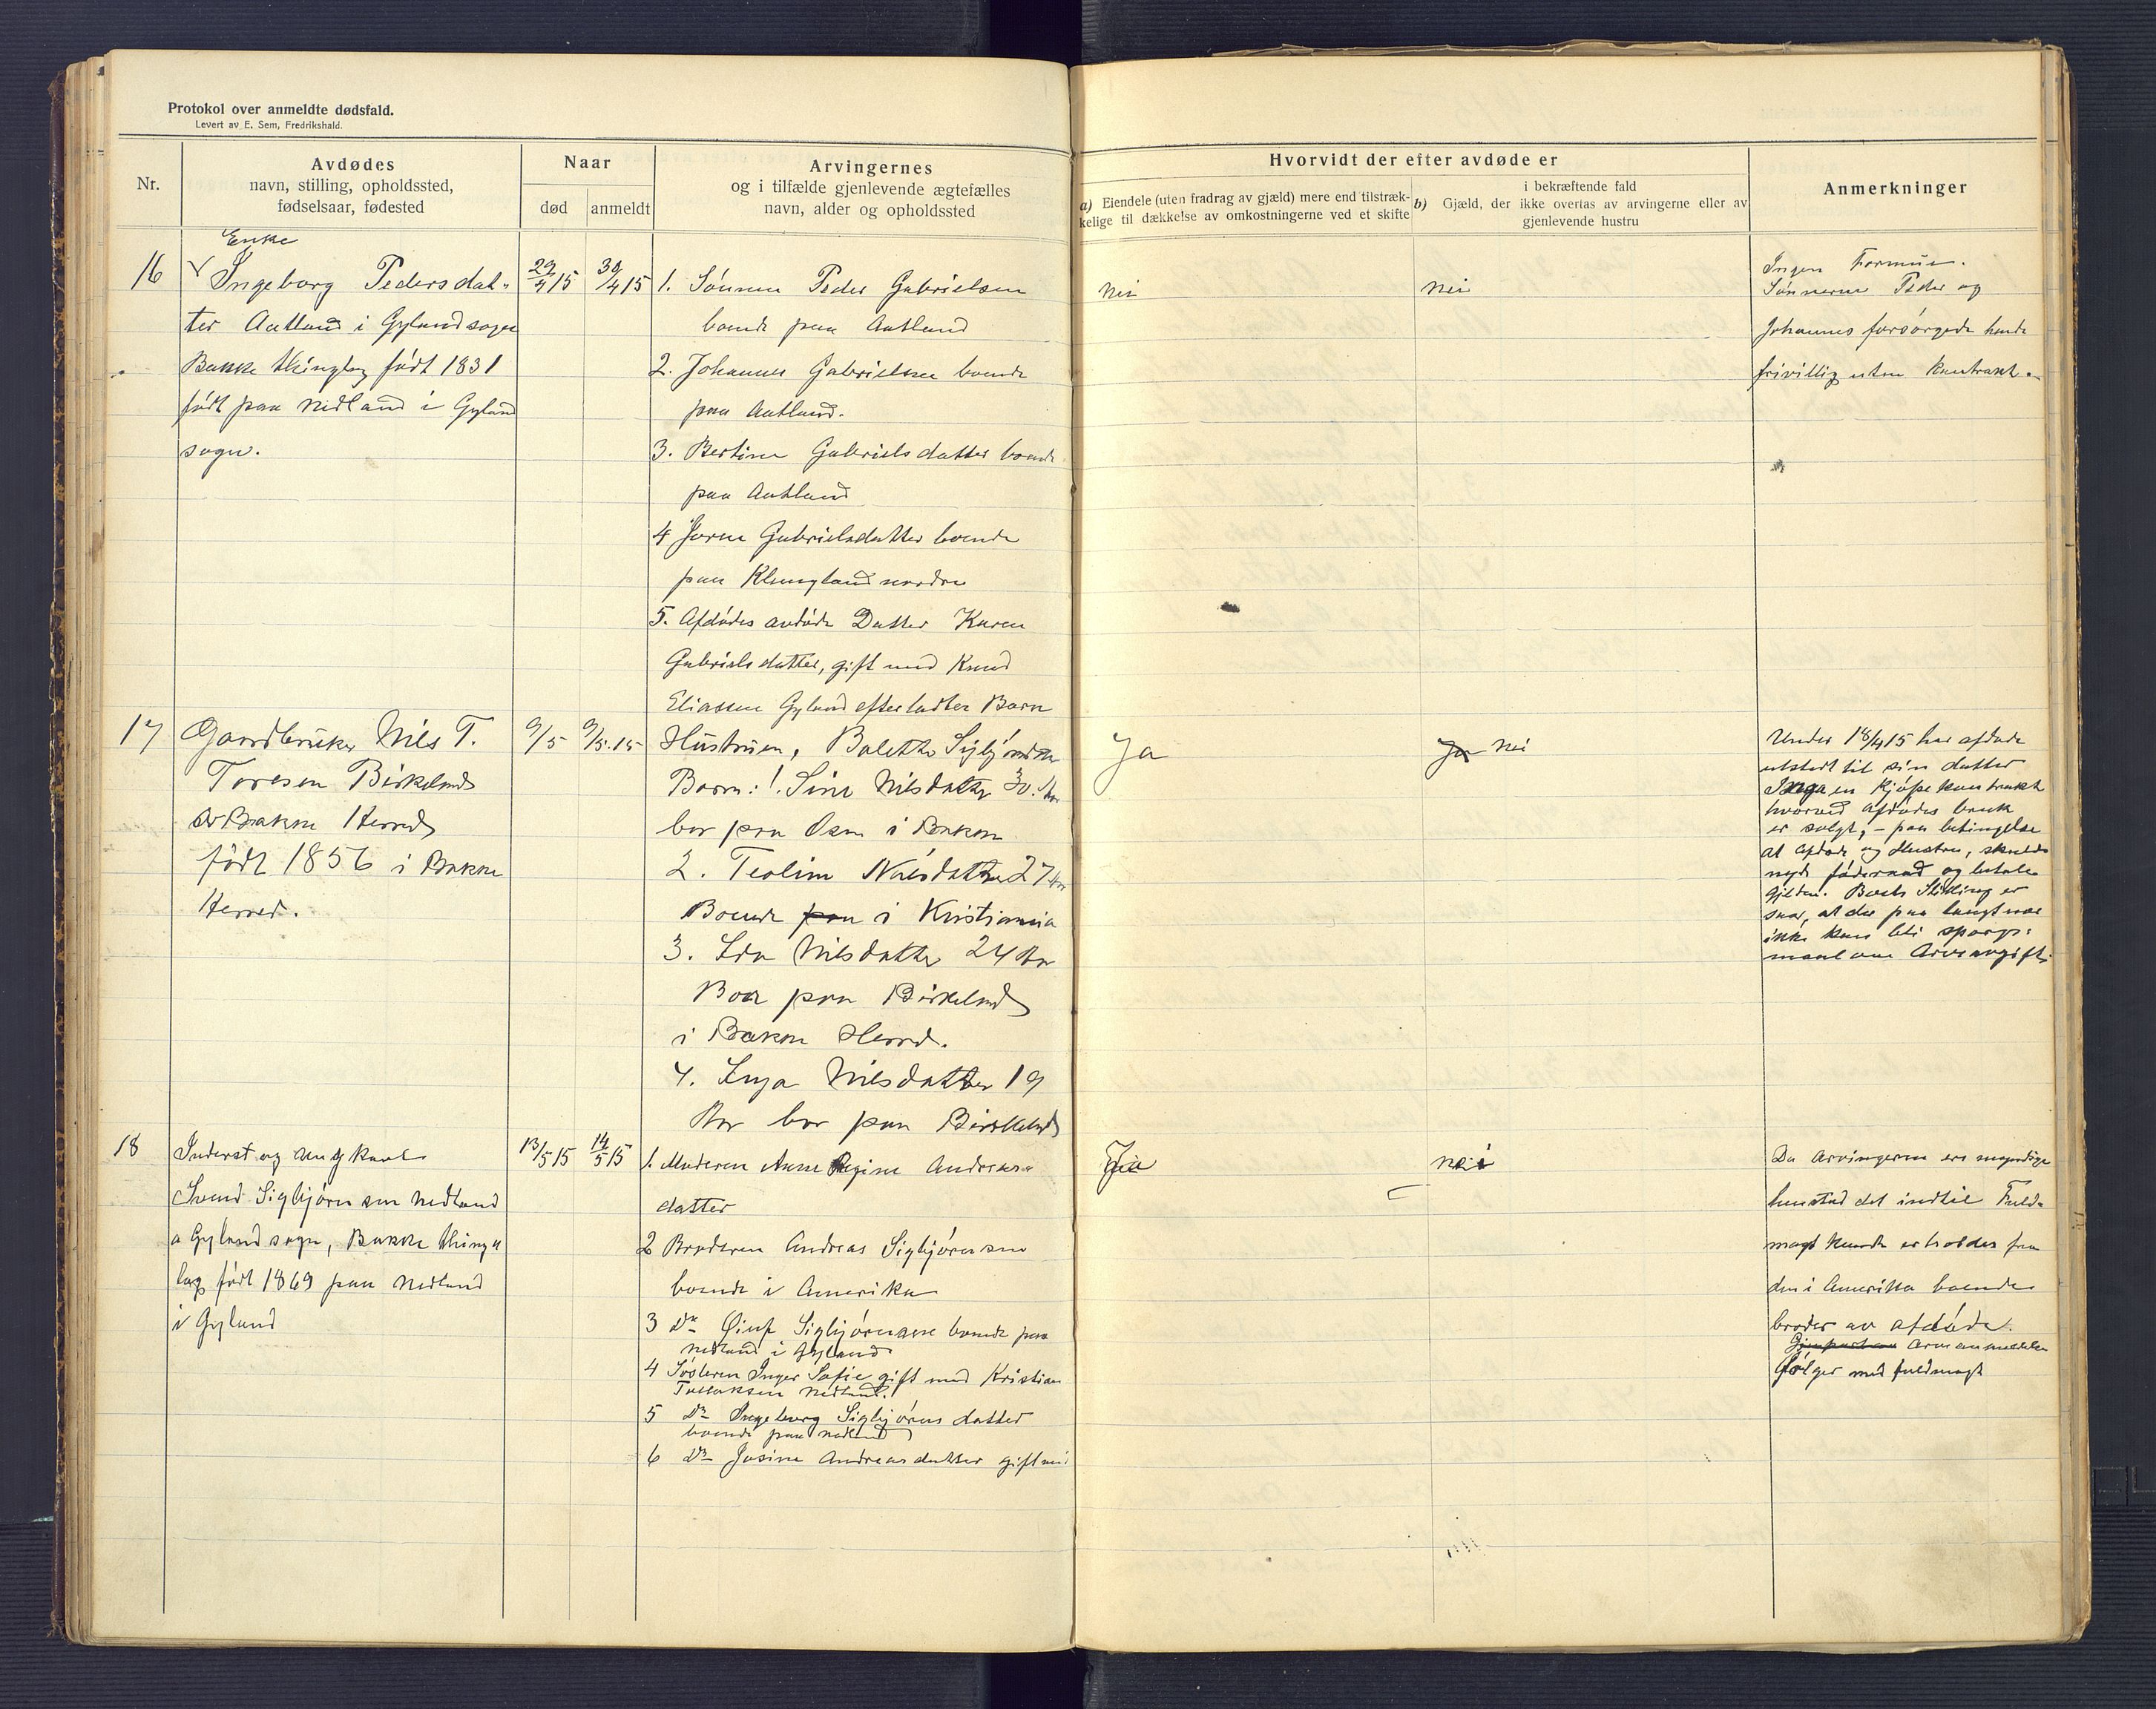 Protokol over anmeldte dødsfald.
Levert av E. Sem, Fredrikshald.
Nr.
Avdødes
navn, stilling, opholdssted,
fødselsaar, fødested
Naar
død
anmeldt
Arvingernes
og i tilfælde gjenlevende ægtefælles
navn, alder og opholdssted
Hvorvidt der efter avdøde er
a) Eiendele (uten fradrag av gjæld) mere end tilstræk-
kelige til dækkelse av omkostningerne ved et skifte
i bekræftende fald
b) Gjæld, der ikke overtas av arvingerne eller av
gjenlevende hustru
Anmerkninger
16
Enke
Ingeborg Pedersdat-
ter Aatland i Gyland sogn
Bakke thinglag født 1831
født paa Nedland i Gyland
sogn.
29/4 15
30/4 15
1. Sønnen Peder Gabrielsen
boende paa Aatland
2. Johannes Gabrielsen boende
paa Aatland.
3. Bertine Gabrielsdatter boende
paa Aatland
4 Jorne Gabrielsdatter boende
paa Klungland nordre
5. Afdødes avdøde Datter Karen
Gabrielsdatter, gift med Knud
Eliassen Gyland efterladte Barn
nei
nei
Ingen Formue.
Sønnerne Peder og
Johannes forsørgede hende
frivillig uten Kontrakt.
17
Gaardbruker Nils T.
Toresen Birkeland
av Bakke Herred
født 1856 i Bakke
Herred.
9/5
9/5.15
Hustruen, Bolette Sigbjørnsdtr
Børn: 1. Sine Nilsdatter 30 Aar
bor paa Osen i Bakke
2. Teoline Nilsdatter 27 Aar
Boende paa i Kristiania
3. Ida Nilsdatter 24 Aar
Boer paa Birkeland
i Bakke Herred.
4. Inga Nilsdatter 19
Aar bor paa Birkeland
Ja
Ja nei
Under 18/4 15 har afdøde
utstedt til sin datter
Inga en Kjøpekontrakt
hvorved Afdødes bruk
er solgt, - paa betingelse
at Afdøde og Hustru, skulde
nyde føderaad og betale
Gjelden. Boets Stilling er
saa, at der paa langt nær
ikke kan bli spørgs-
maal om Arveavgift.
18
Inderst og ungkarl
Svend Sigbjørnsen Nedland
a Gyland sogn, Bakke thing
lag født 1869 paa Nedland
i Gyland
13/5 15
14/5 15
1. Moderen Anne Regine Andreas
datter
2 Broderen Andreas Sigbjørnsen
boende i Amerika
3 Do Sigbjørnsen boende paa
Nedland i Gyland
4 Søsteren Inger Sofie gift med Kristian
Tollaksen Nedland.
5 Do Ingeborg Sigbjørnsdatter
boende paa Nedland
6 Do Josine Andreasdatter gift med
Ja
nei
Da Arvingerne er myndige
henstod det indtil Fuld-
magt kunde erholdes fra
den i Amerika boende
broder av afdøde.
Arveanmeldelse
følger med fuldmagt